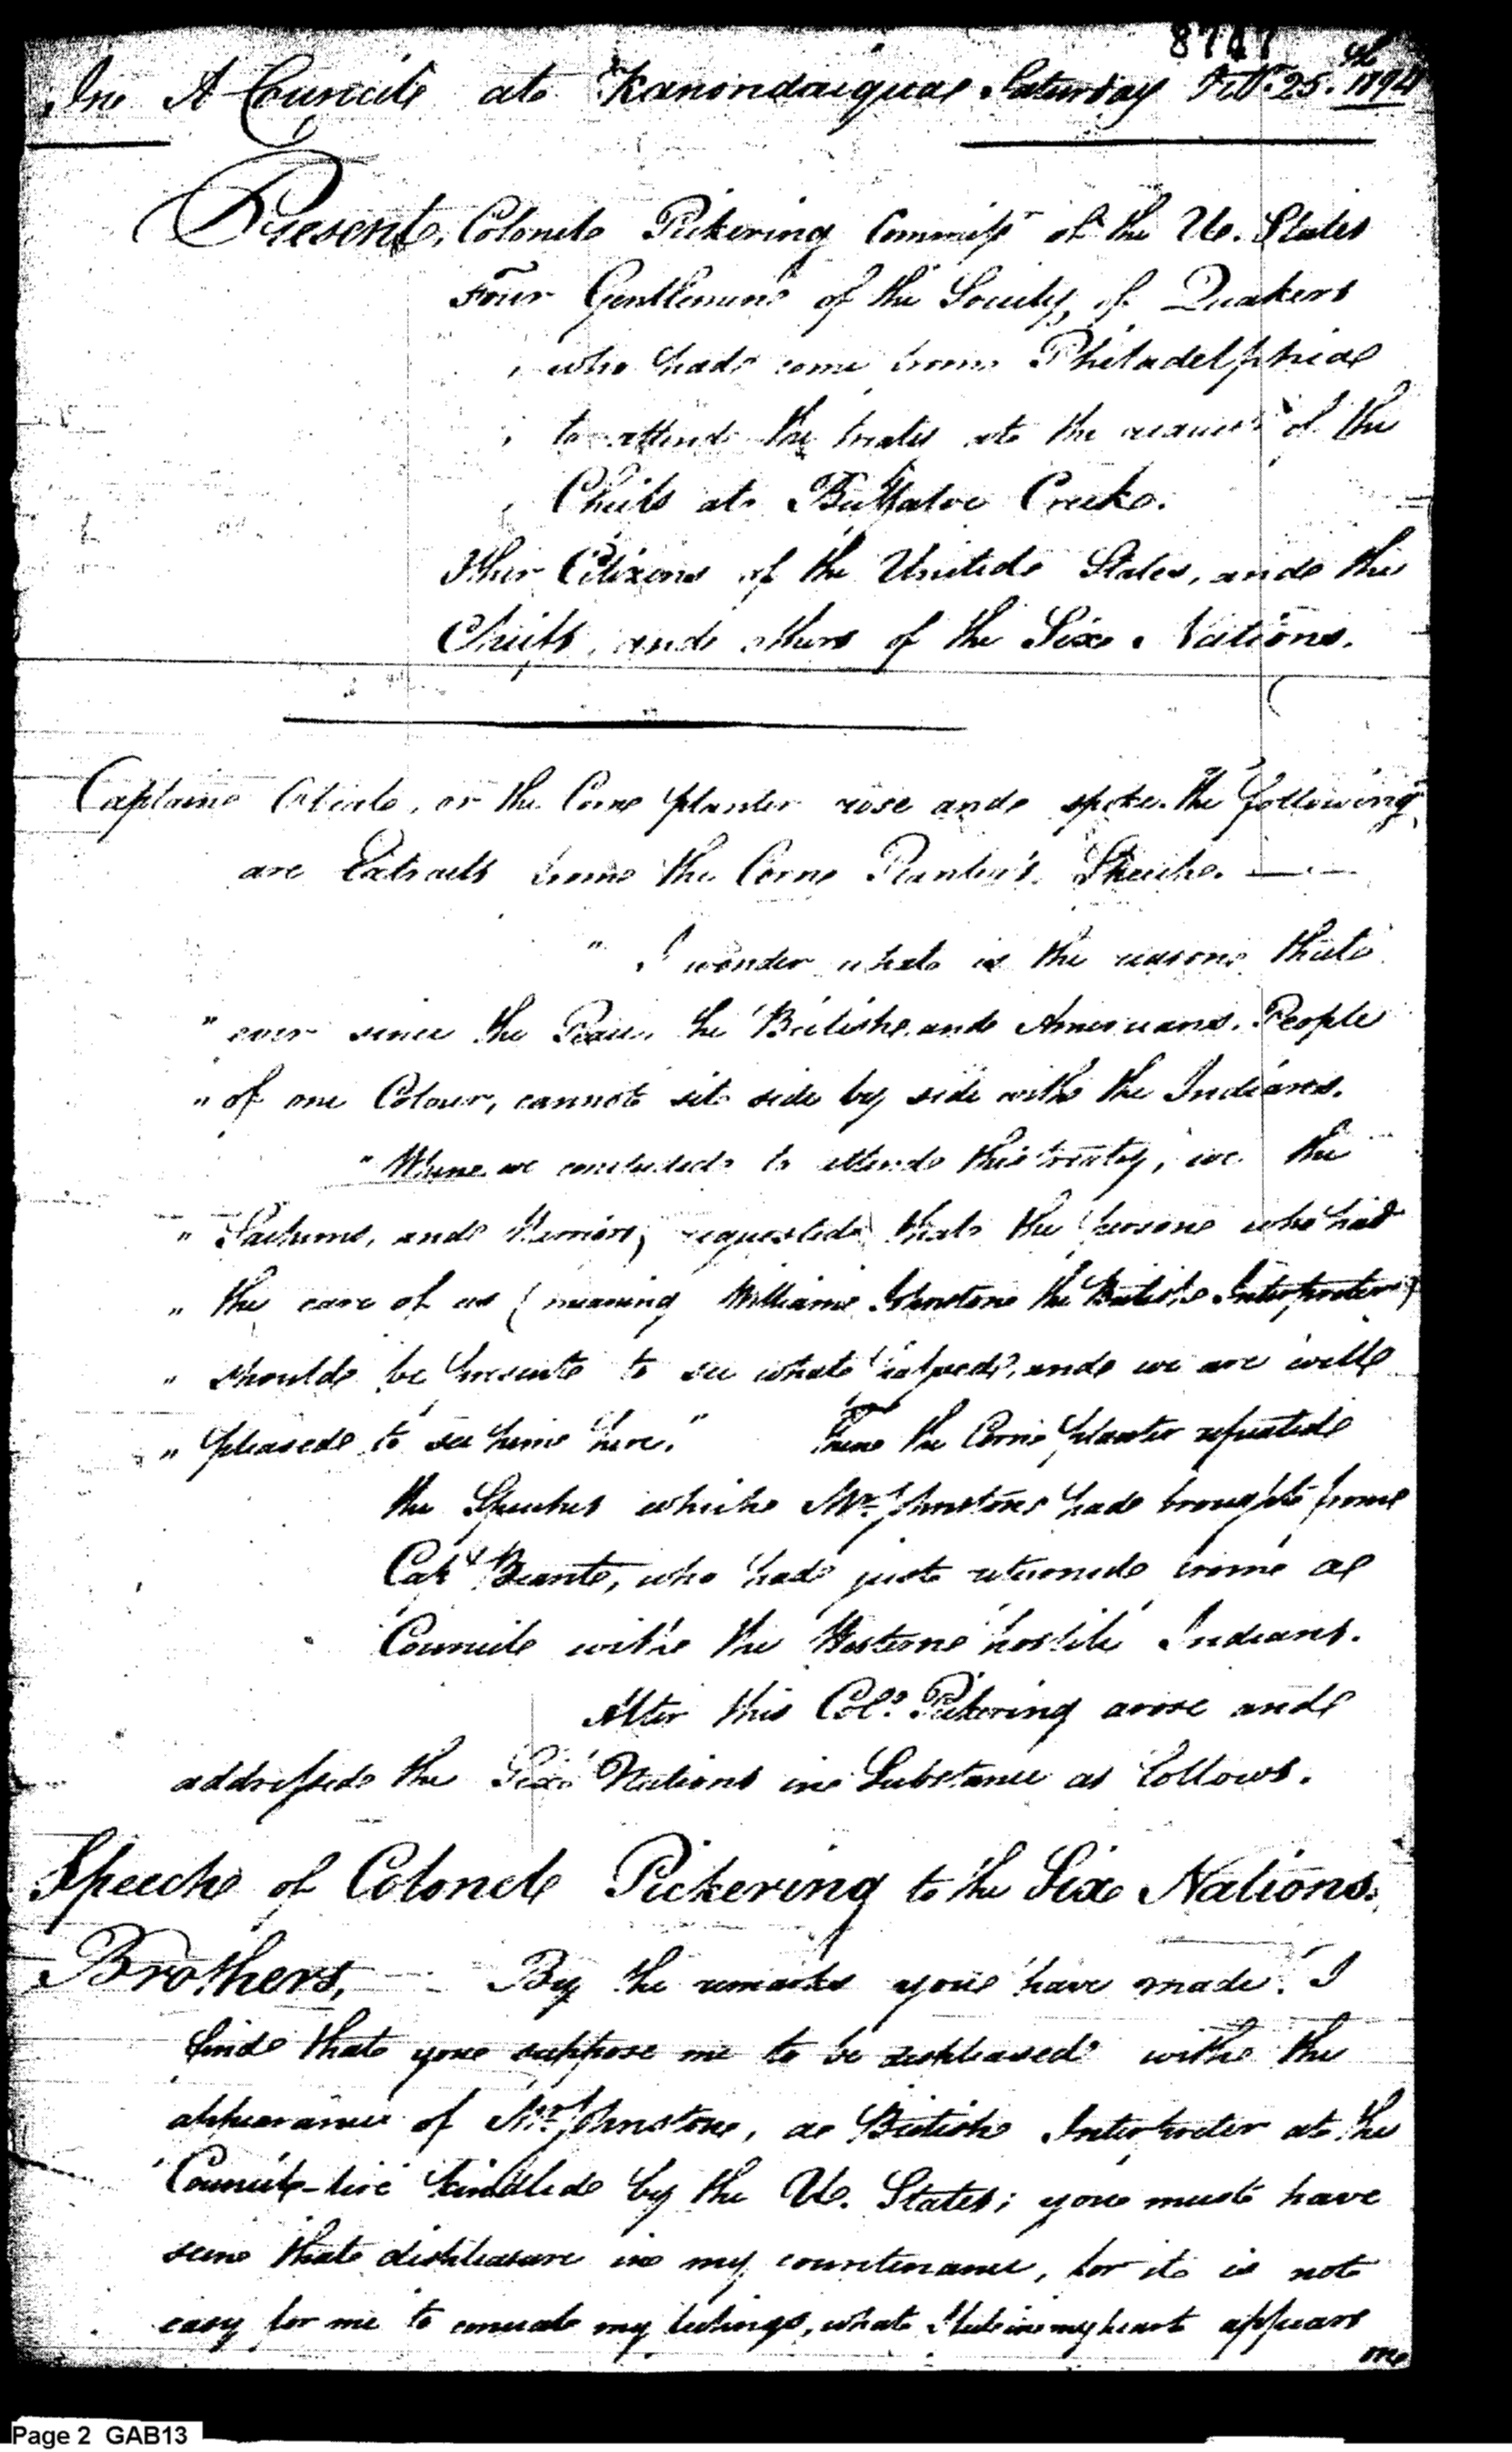 8747
In A Council at Kanondaigua Saturday 25.th 1794
Present, Colonel Pickering Commissr of the U. States
Four Gentlemen of the Society of Quakers
who had come from Philadelphia
to attend the treaty at the request of the
Chiefs at Buffaloe Creek.
Other Citizens of the United States, and the
Chiefs, and others of the Six Nations.
Captain Obeal, or the Corn planter rose and spoke. the following
are Extracts from the Corn Planter's Speech. —
" I wonder what is the reason that
" ever since the Peace, the British and Americans, People
" of one Colour, cannot sit side by side with the Indians.
" When we concluded to attend this treaty, we the
" Sachems, and Warriors, requested that the person who had
" the care of us (meaning William Johnston the British Interpreter)
" should be present to see what passed, and we are well
" pleased to see him here." Then the Corn planter repeated
the Speeches which Mr. Johnston had brought from
Capt Brant, who had just returned from a
Council with the Western hostile Indians.
After this Colo. Pickering arose and
addressed the Six Nations in Substance as follows.
Speech of Colonel Pickering to the Six Nations.
Brothers, By the remarks you have made, I
find that you suppose me to be displeased with the
appearance of Mr. Johnston, a British Interpreter at the
Council-fire kindled by the U. States; you must have
seen that displeasure in my countenance, for it is not
easy for me to conceal my feelings, what I feel in my heart appears
on
Page 2 GAB13